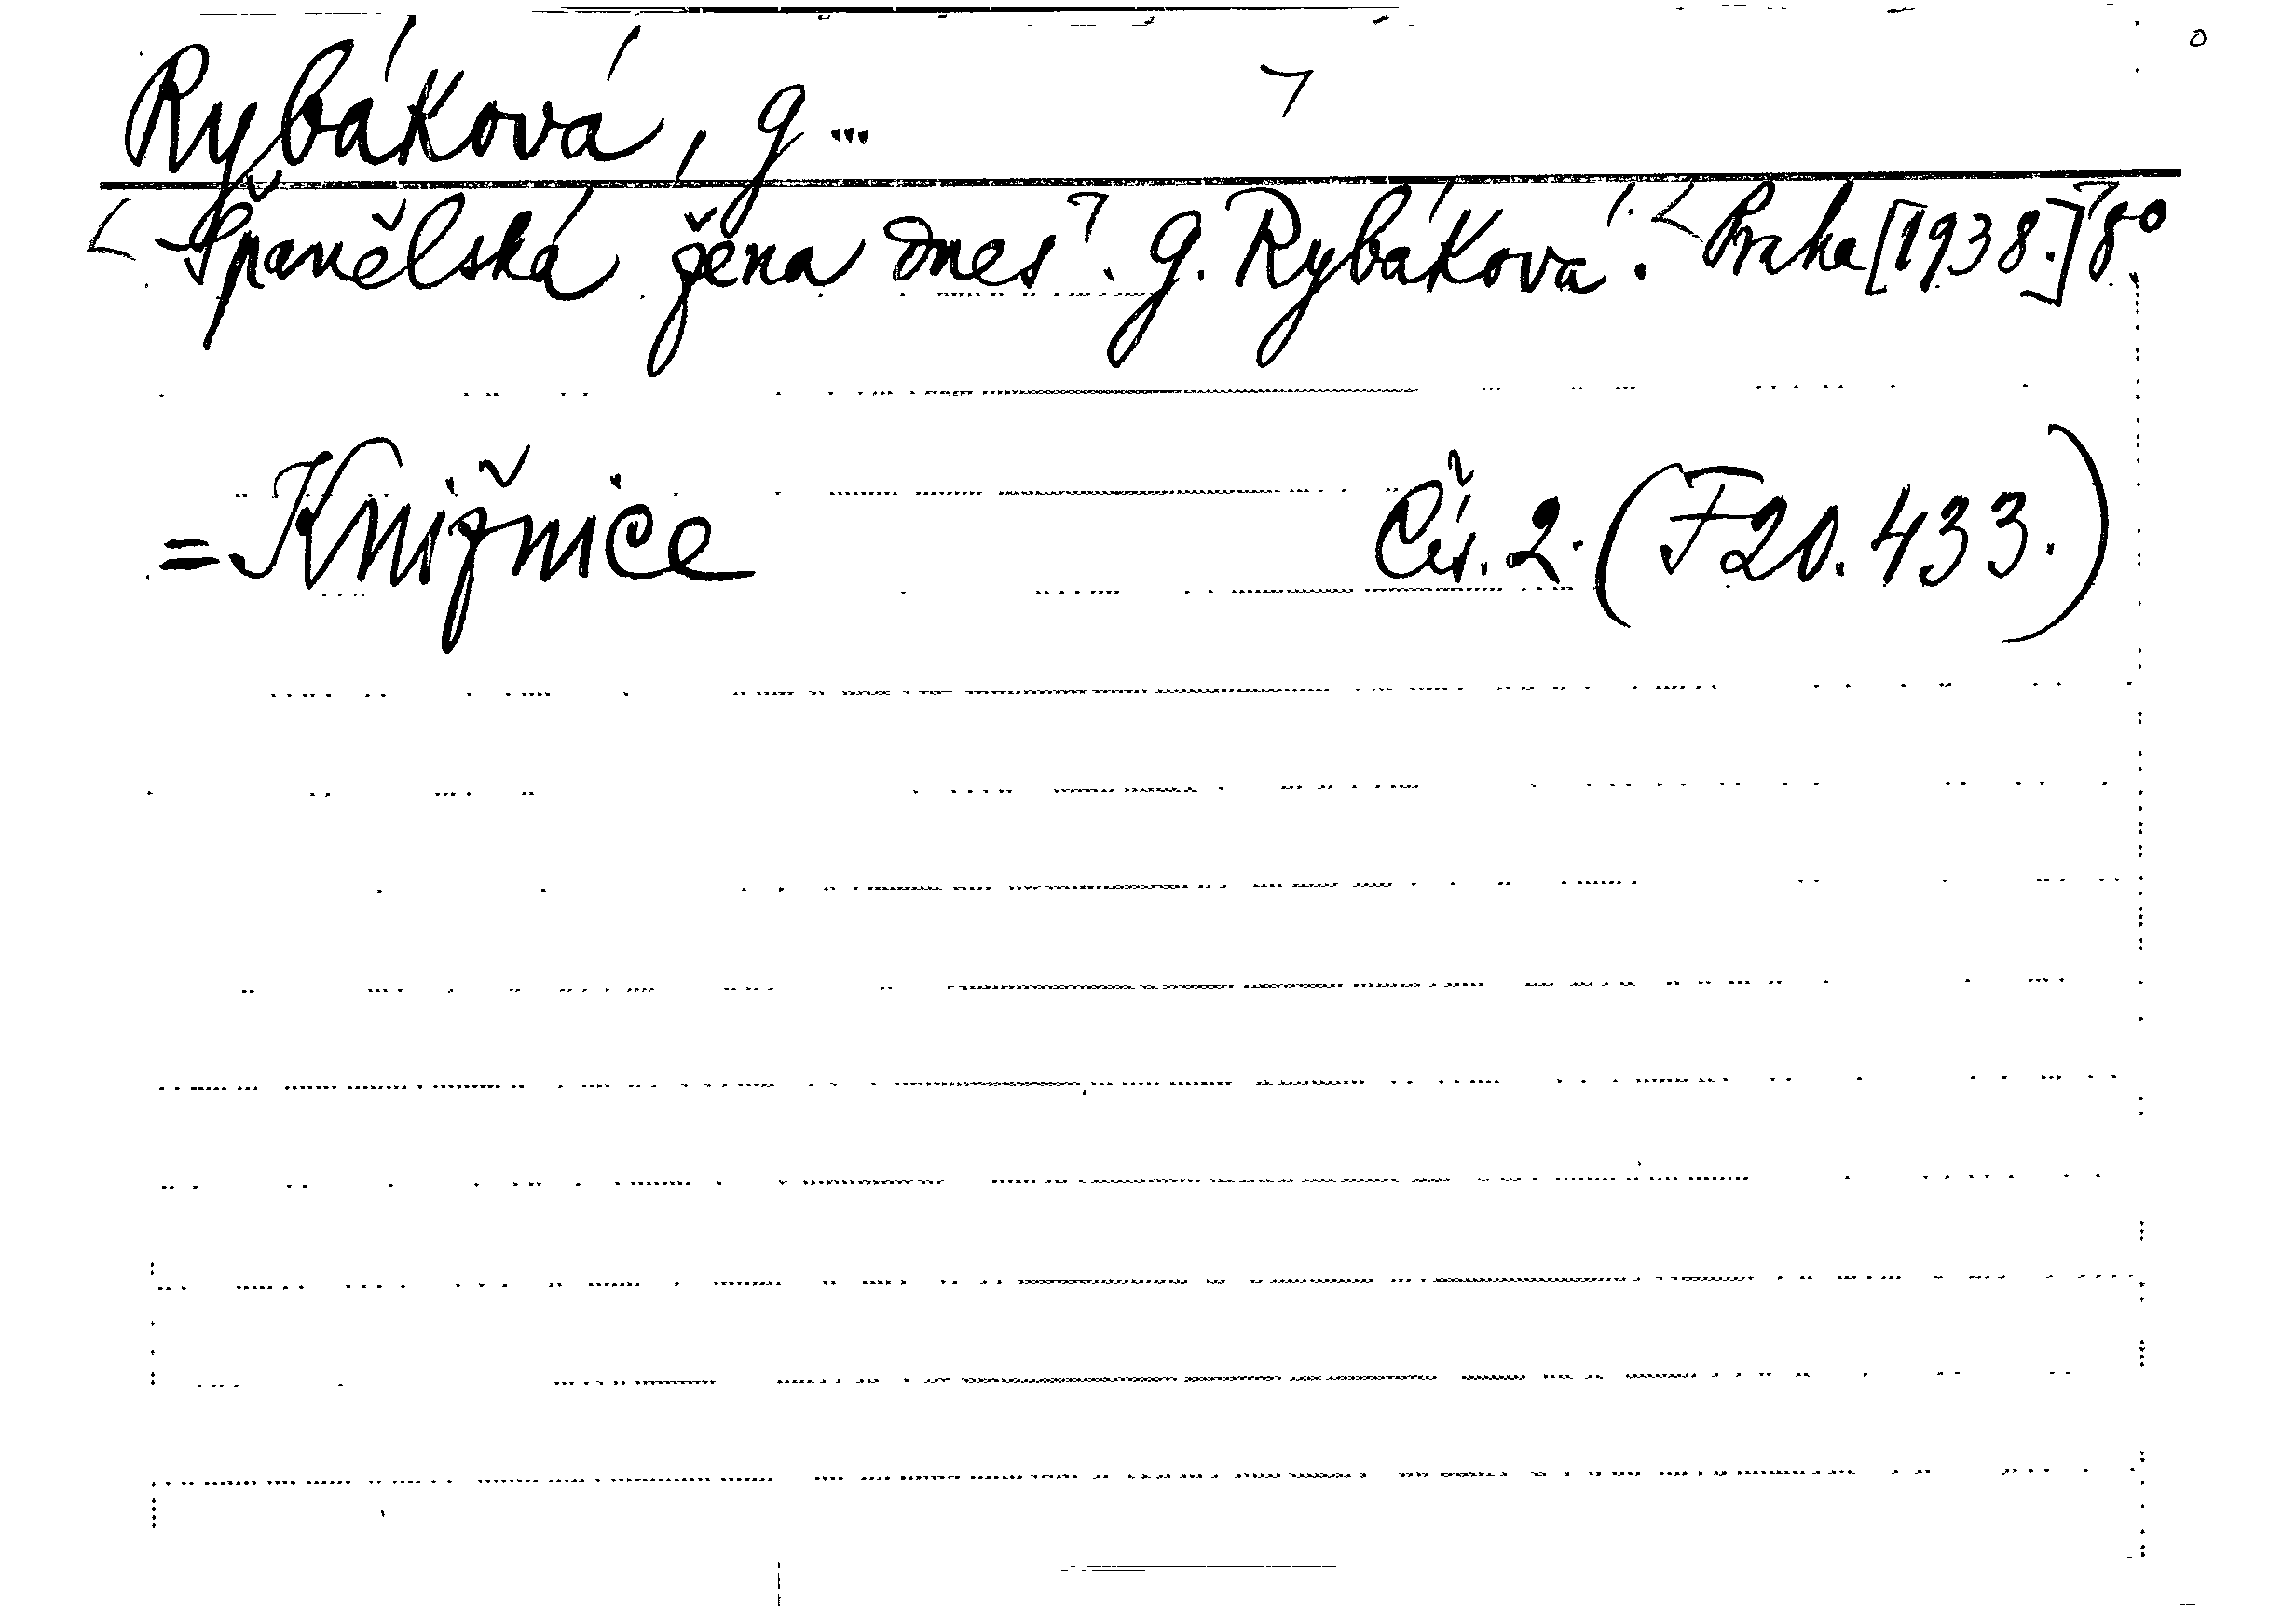 Rybáková, G...
Španělská žena dnes. G. Rybáková. Praha [1938.] 8°.
= Knižnice Čís. 2. (F 20.433.)